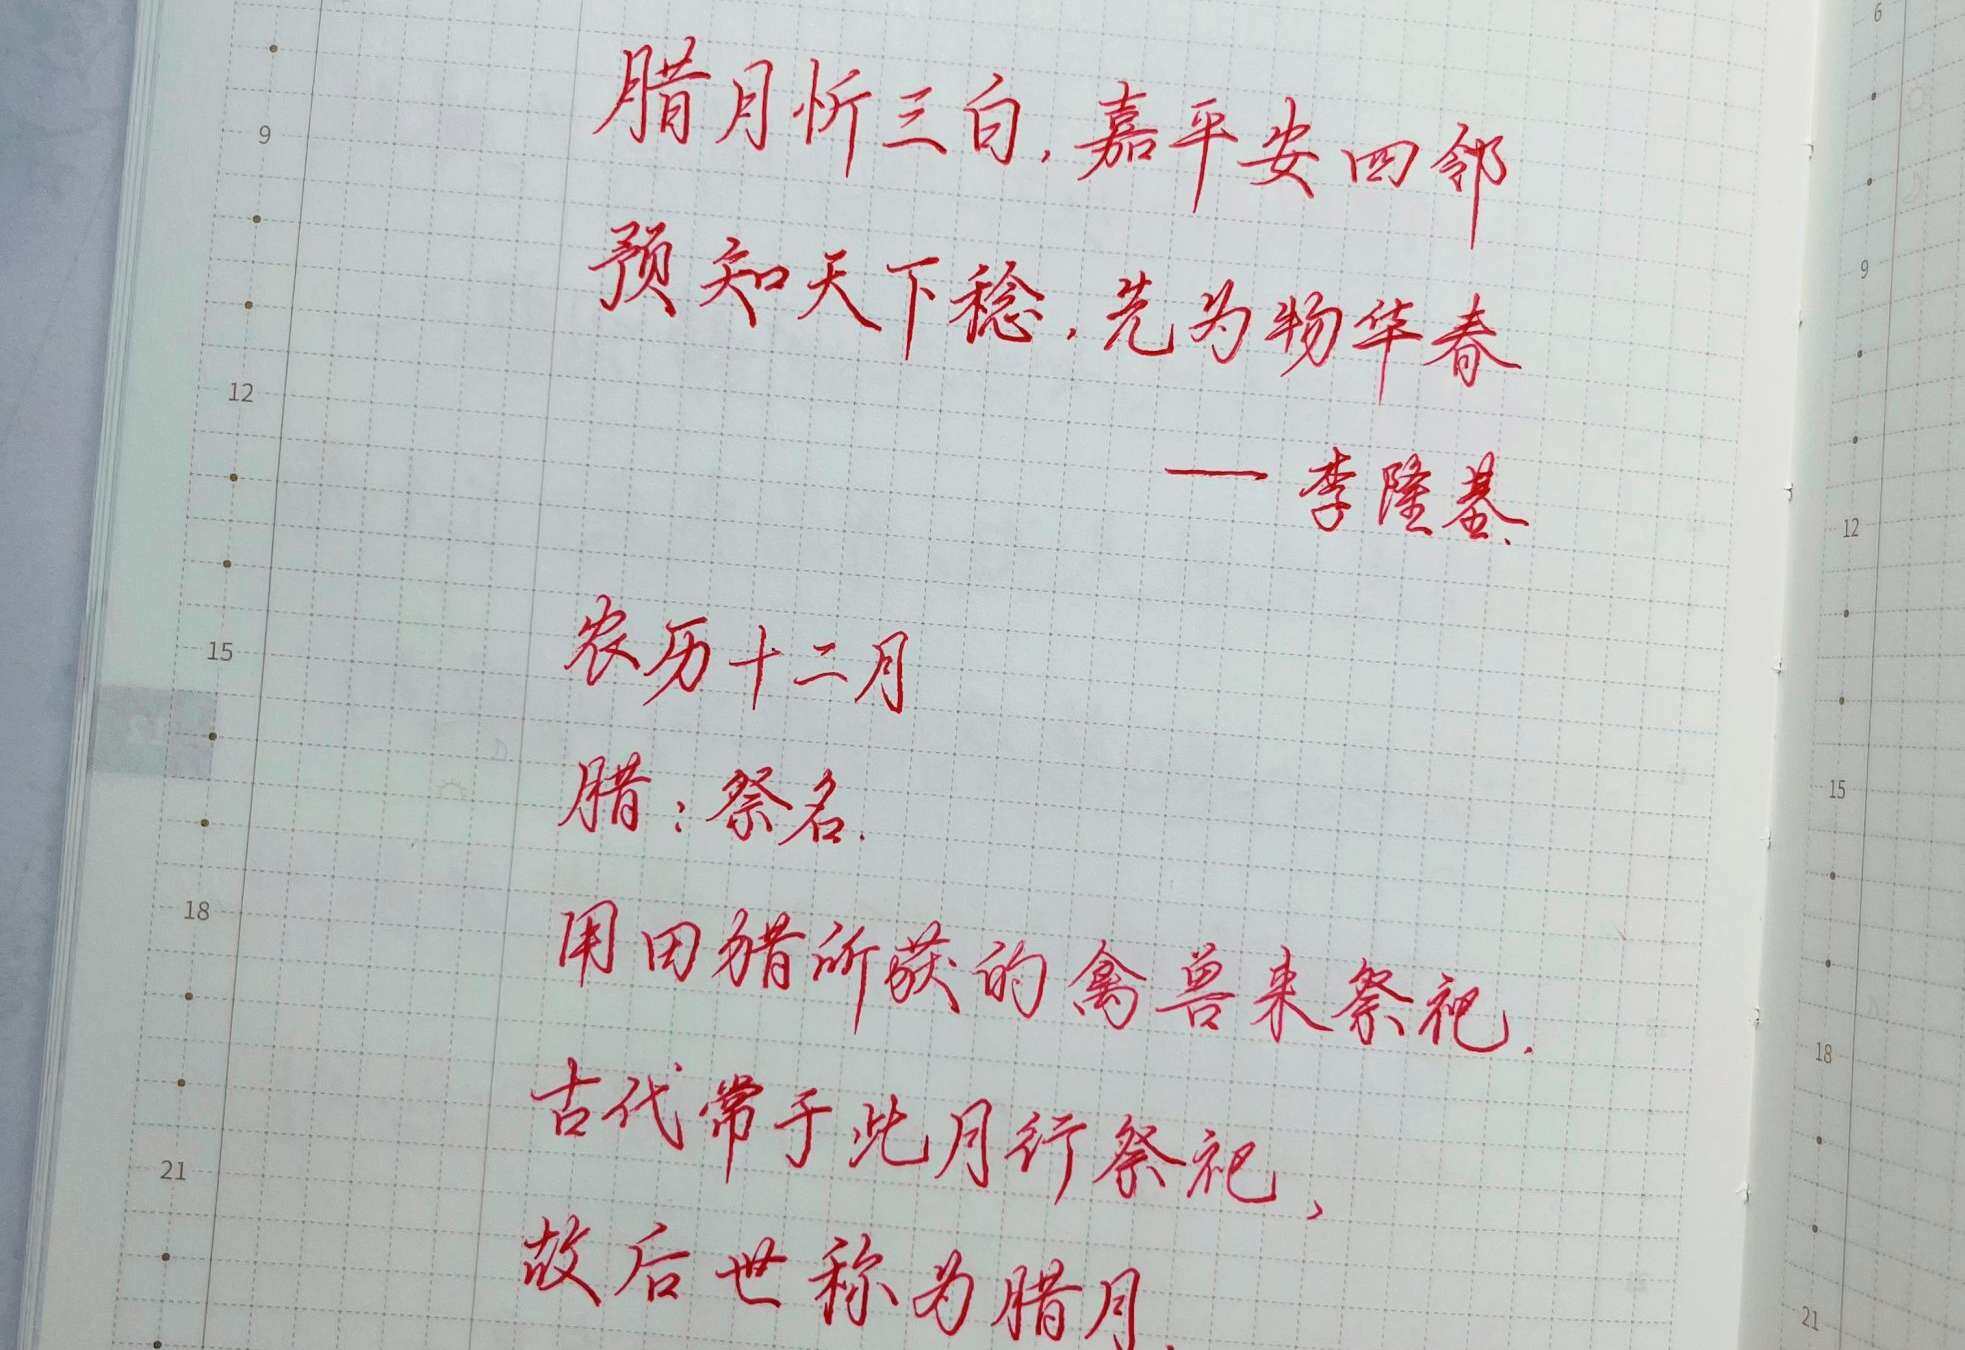 腊月忻三白，嘉平安四邻
预知天下稔，先为物华春
— 李隆基.
农历十二月
腊：祭名.
用田猎所获的禽兽来祭祀.
古代常于此月行祭祀、
故后世称为腊月.
9
12
15
18
21
6
9
12
15
18
21